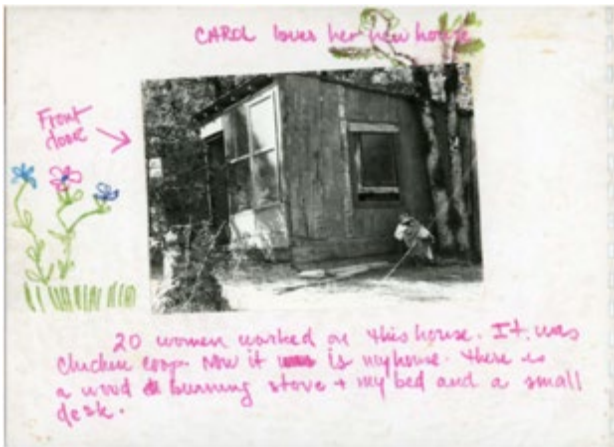 CAROL loves her new house
Front
door
20 women worked on this house. It was
chicken coop now it is my house. there is
a wood burning stove + my bed and a small
desk.